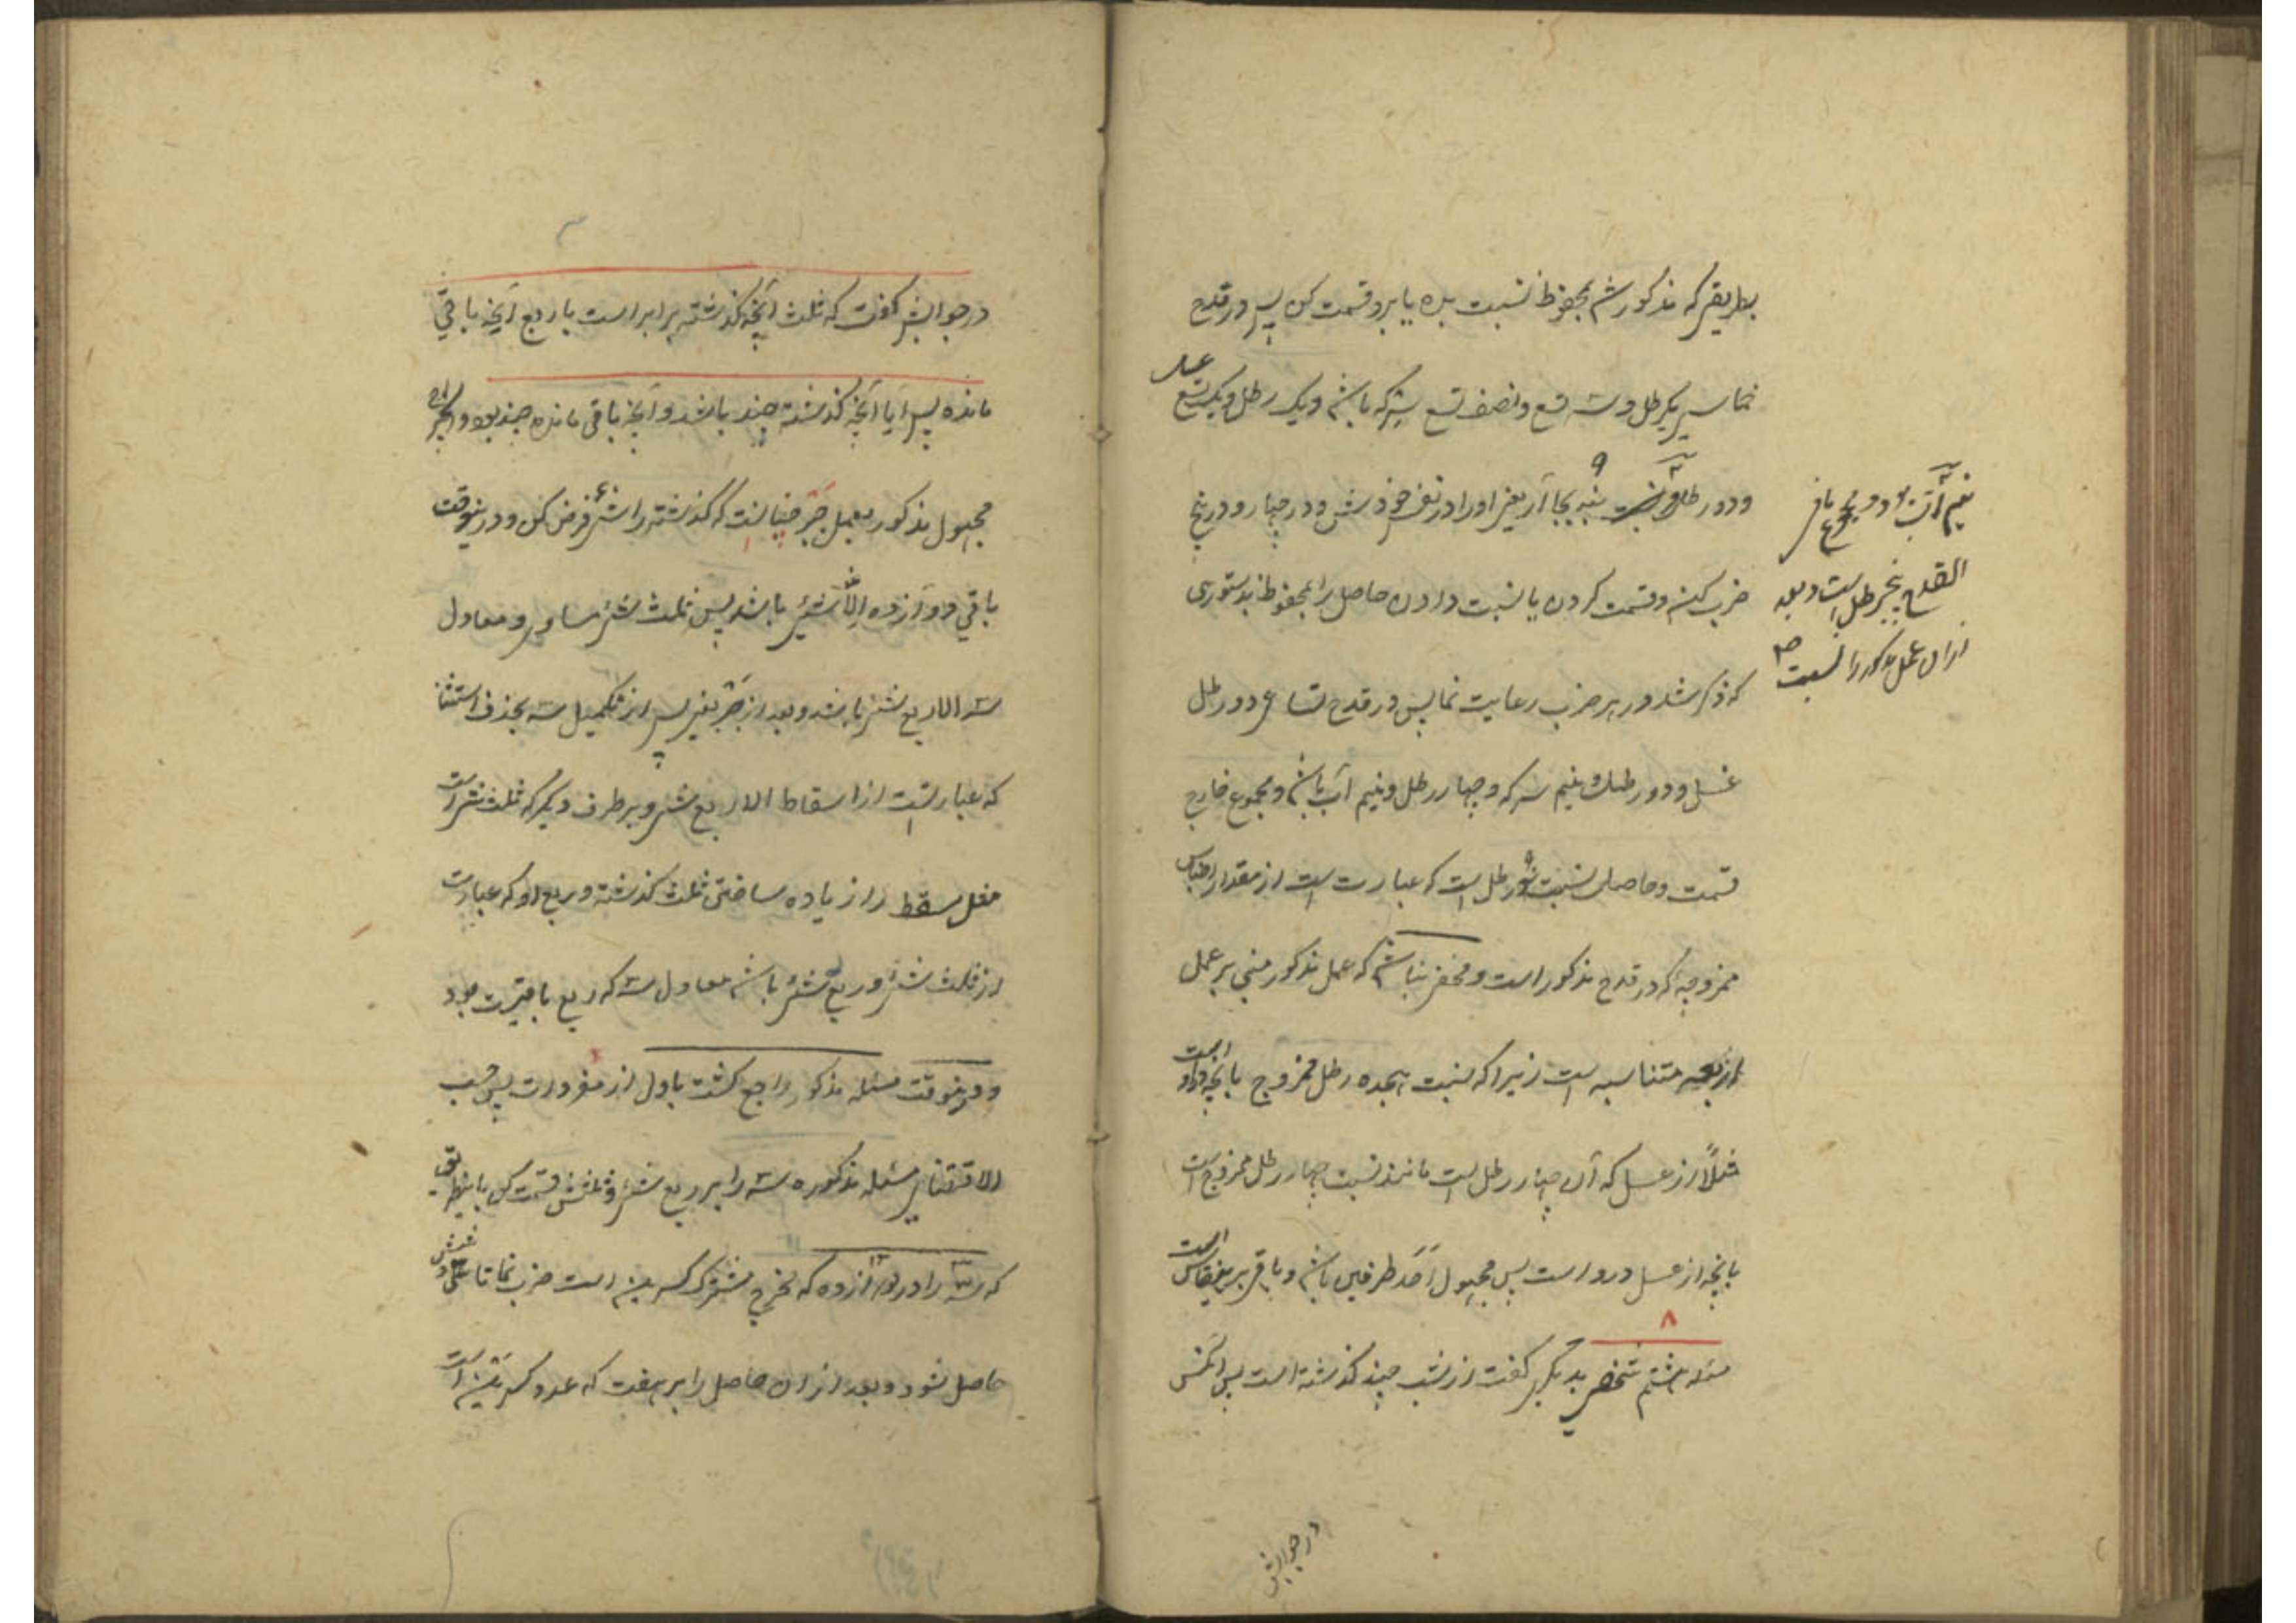 بطریقی که مذکور شد بمحفوظ نسبت بده یا برو قسمت کن پس در قدح
خماسی یکرطل و سه تسع و نصف تسع سرکه باشد و یک رطل و یک تسع عسل
و دو رطل و آب بجا آر یعنی او را در نفس خودش و در چهار و در پنج
ضرب کنی و قسمت کردن یا نسبت دادن حاصل را بمحفوظ بدستوری
که ذکر شد در هر ضرب رعایت نما پس در قدح تساعی دو رطل
عسل و دو رطل و نیم سرکه و چهار رطل و نیم آب باشد و مجموع خارج
قسمت و حاصل نسبت نه رطل است که عبارت است از مقدار اجناس
ممزوجه که در قدح مذکور است و مخفی نباشد که عمل مذکور مبنی بر عمل
اربعه متناسبه است زیرا که نسبت هیجده رطل ممزوج بانچه درو است
مثلاً از عسل که آن چهار رطل است مانند نسبت چهار رطل ممزوج است
بانچه از عسل درو است پس مجهول اَحَد طرفین باشد و باقی برینقیاس است
۸
مسئله هشتم شخصی بدیگری گفت از شب چند گذشته است پس آنکس
نیم آب و مجموع ما فی
القدح پنج رطل است و بعد
ازان عمل مذکور را نسبت
در جوابش
در جوابش گفت که ثلث آنچه گذشته برابر است با ربع آنچه باقی
مانده پس آیا آنچه گذشته چند باشد و آنچه باقی مانده چند بود و استخراج
مجهول مذکور بعمل جَبْر چنانست که گذشته را شئ فرض کنی و درینوقت
باقی دوازده الّا شئ باشد پس ثلث شئ مساوی و معادل
سه الا ربع شئ باشد و بعد از جَبْر یعنی پس از تکمیل سه بحذف استثنا
که عبارتست از اسقاط الا ربع شئ و بر طرف دیگر که ثلث شئ است
مثل مسقط را زیاده ساختن ثلث گذشته و ربع او که عبارت
از ثلث شئ و ربع شئ باشد معادل سه که ربع باقیست بود
و درینوقت مسئله مذکور راجع گشت باول از مفردات پس حسب
الاقتضای مسئله مذکوره سه را بر ربع شئ و ثلثش قسمت کن باینطریق
که سه را در دوازده که مخرج مشترک کسرین است ضرب نما تا سی و شش
حاصل شود و بعد ازان حاصل را بر هفت که عدد کسرین است